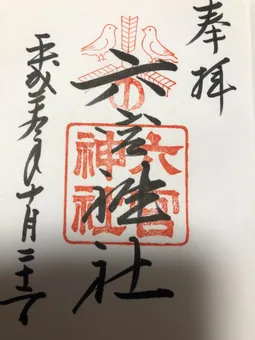 奉拝
六宮神社
六宮神社
平成三十年十月二十一日